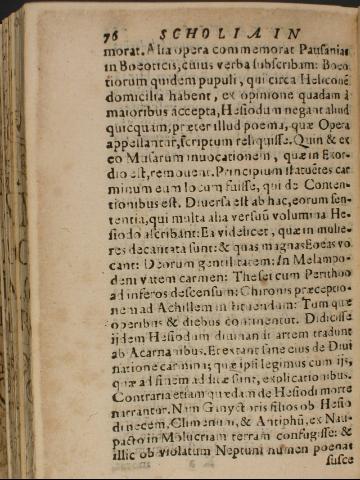 76 SCHOLIA IN
morat. Alia opera commemorat Pausanias
in Boeoticis, cuius verba subscribam: Boeo
tiorum quidem pupuli, qui circa Heliconē
domicilia habent, ex opinione quadam à
maioribus accepta, Hesiodum negant aliud
quicquam, præter illud poema, quæ Opera
appellantur, scriptum reliquisse. Quin & ex
eo Musarum inuocationem, quæ in Exor-
dio est, remouent. Principium statuētes car
minum eum locum fuisse, qui de Conten-
tionibus est. Diuersa est ab hac, eorum sen-
tentia, qui multa alia versuū volumina He-
siodo ascribant: Ea videlicet, quæ in mulie-
res decantata sunt: & quas magnas Eoëas vo
cant: Deorum gentilitatem: In Melampo-
dem vatem carmen: Thesei cum Perithoo
ad inferos descensum: Chironis præceptio-
nem ad Achillem instituendum: Tum quæ
operibus & diebus continentur. Didicisse
ijdem Hesiodum diuinandi artem tradunt
ab Acarnanibus. Et extant sane eius de Diui
natione carmina; quæ ipsi legimus cum ijs,
quæ ad finem additæ sunt, explicationibus.
Contraria etiam quædam de Hesiodi morte
narrantur. Nam Ganyctoris filios ob Hesio
di necem, Climenum, & Antiphū, ex Nau-
pacto in Molucriam terram confugisse: &
illic ob violatum Neptuni numen poenas
susce